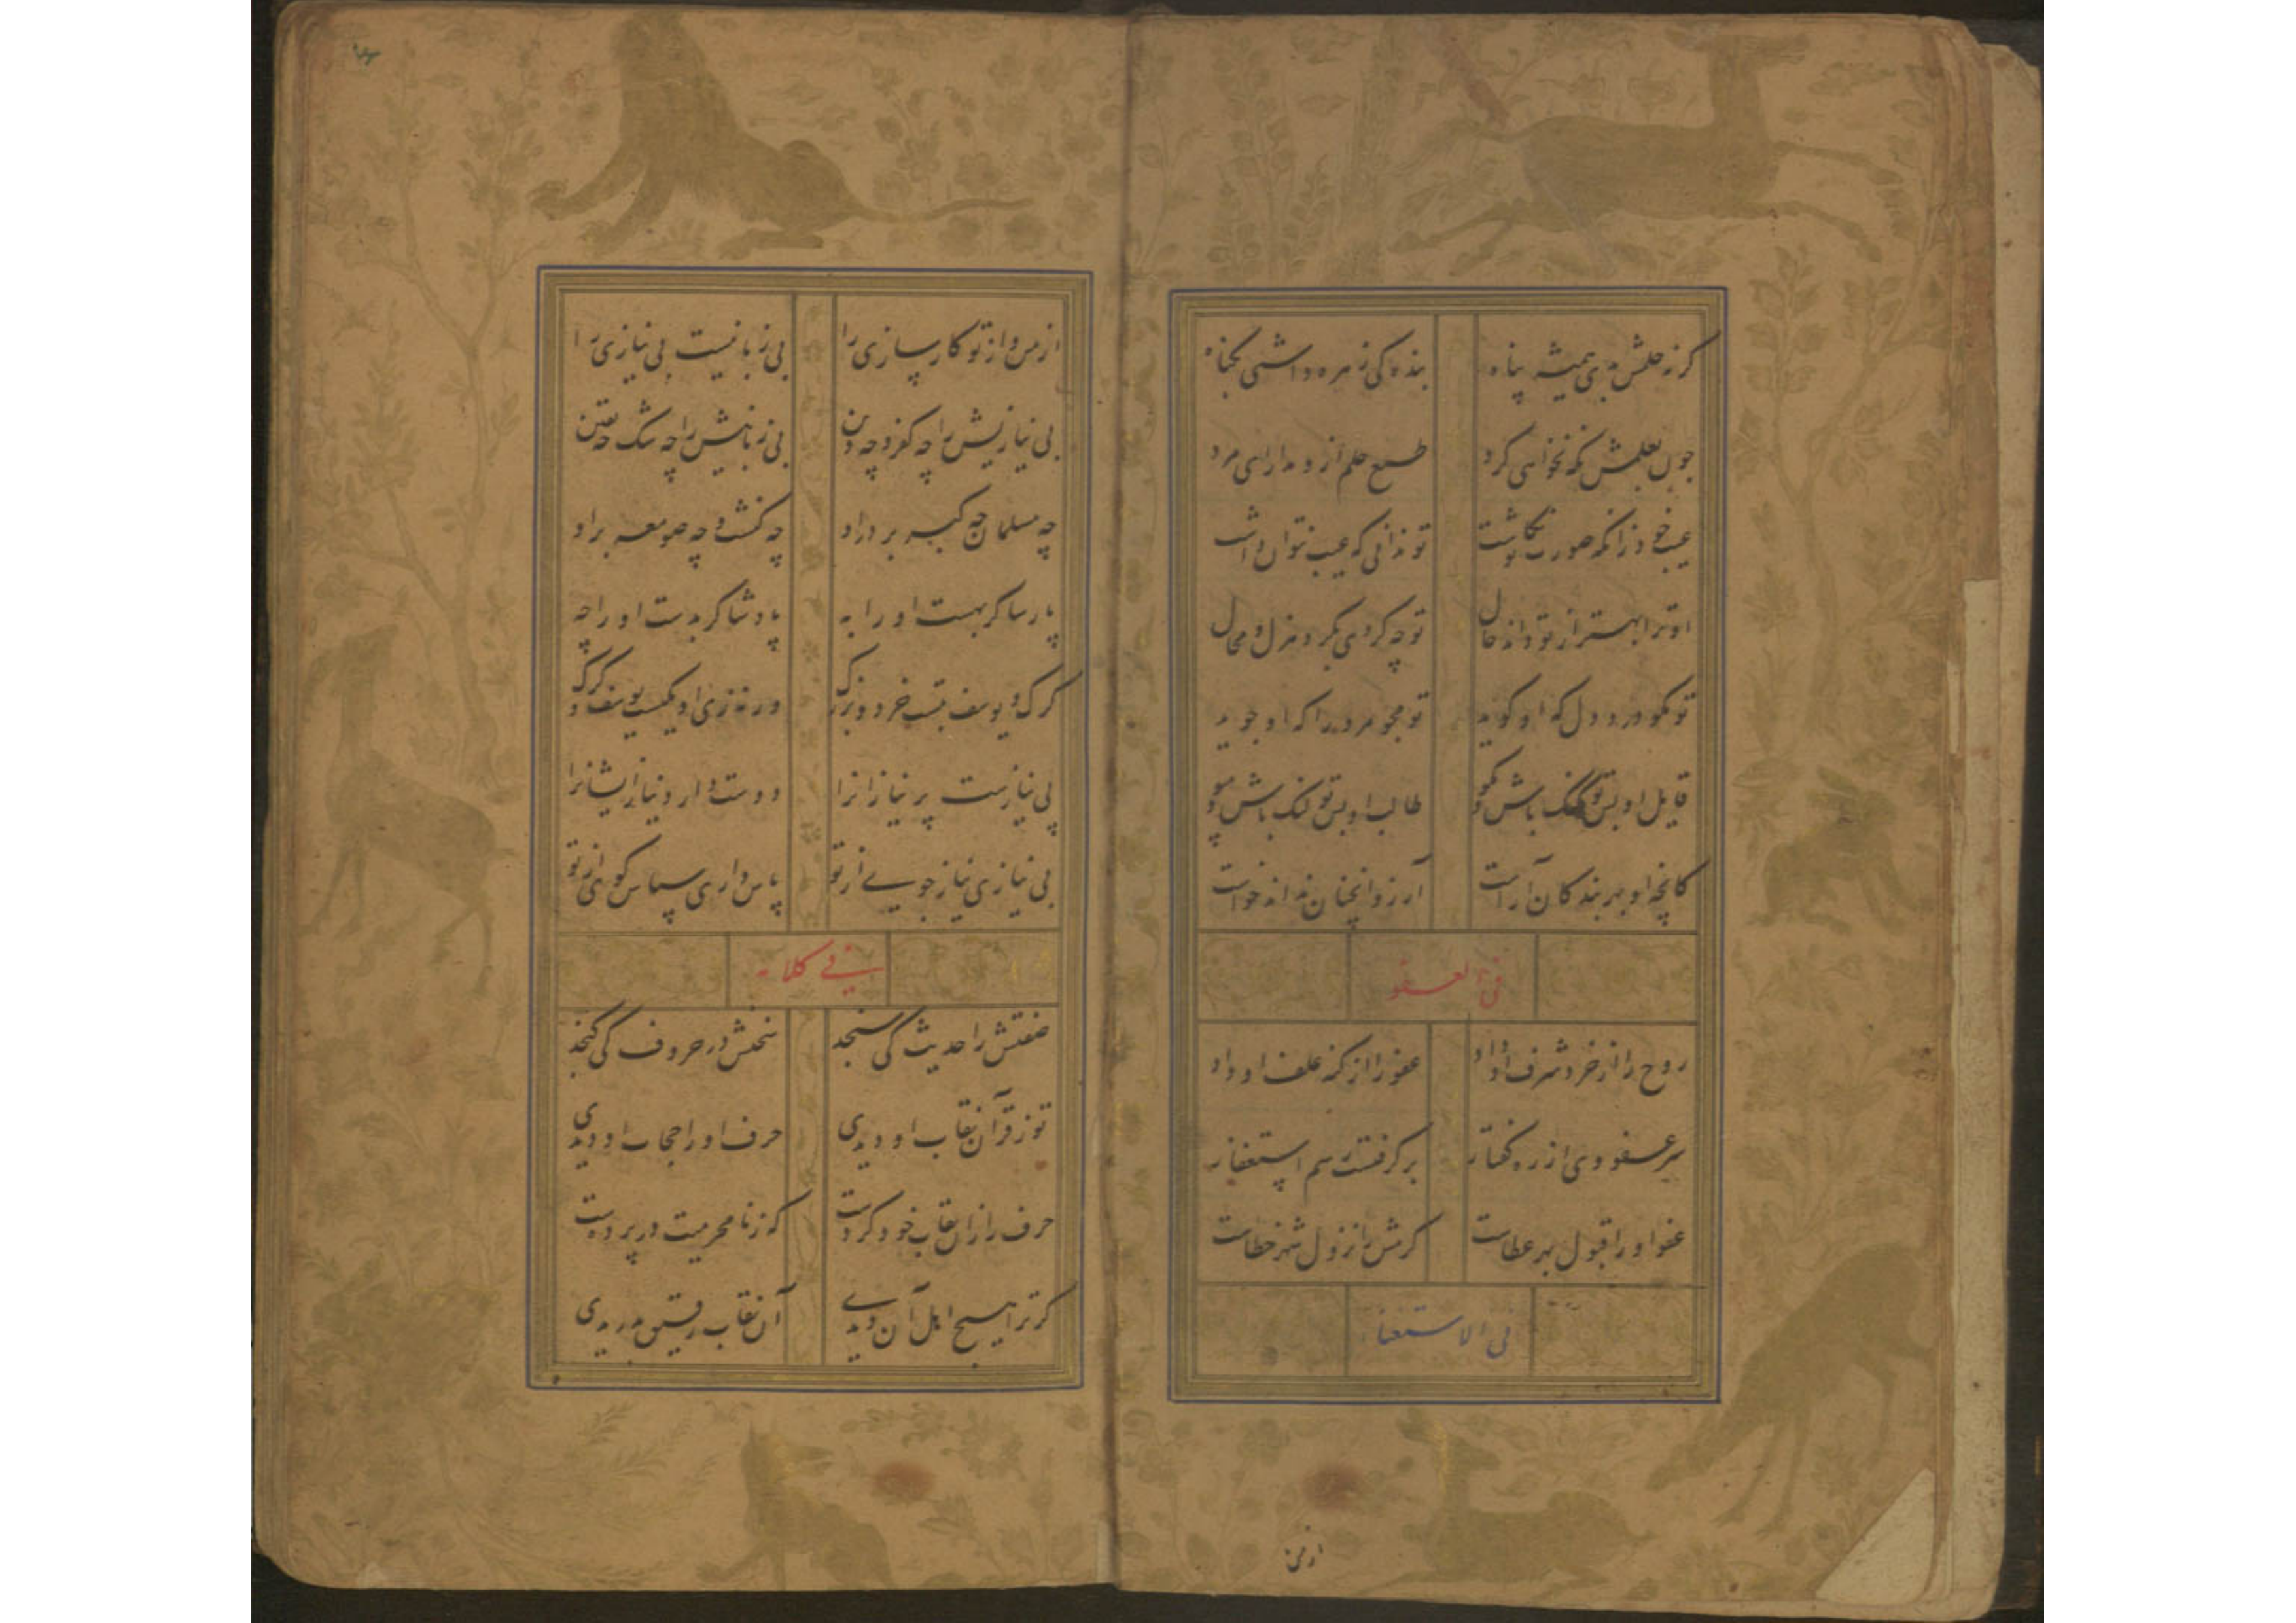 کرنه حلمش بدی همیشه پناه بنده کی زهره داشتی بکناه
چون بعلمش نکه نخواهی کرد طمع حلم ازو مدار ای مرد
عیب خود زانکه صورت نکاشت تو ندانی که عیب نتوان داشت
او ترا بهتر از تو داند حال تو چه کردی بکرد هزل و محال
تو مکو درد دل که او کوید تو مجو مر ورا که او جوید
قایل او بس تو کنک باش مکو طالب او بس تو لنک باش مپو
کانچه او بهر بندکان آراست آرزو آنچنان نداند خواست
فی العفو
روح را از خرد شرف او داد عفو را از کنه علف او داد
سر عفو وی از ره کفتار برکرفتست رسم استغفار
عفو او را قبول بهر عطاست کرمش را نزول بهر خطاست
فی الاستغنا
از من
از من و از تو کارسازی را بی زبانیست بی نیازی را
بی نیازیش را چه کفر و چه دین بی زبانیش را چه شک چه یقین
چه مسلمان چه کبر بر در او چه کنشت و چه صومعه بر او
پارسا کر بهست او را به پادشا کر بدست او را چه
کرک و یوسف بتست خرد و بزرک ورنه زی او یکیست یوسف و کرک
بی نیازست پر نیازانرا دوست دارد نیاز ایشانرا
بی نیازی نیاز جویی از تو پاس داری سپاس کوی از تو
فی کلامه
صفتش را حدیث کی سنجد سخنش در حروف کی کنجد
تو ز قرآن نقاب او دیدی حرف او را حجاب او دیدی
حرف را زان نقاب خود کردست که ز نامحرمیت در پردست
کر ترا هیچ اهل آن دیدی آن نقاب رقیق بدریدی